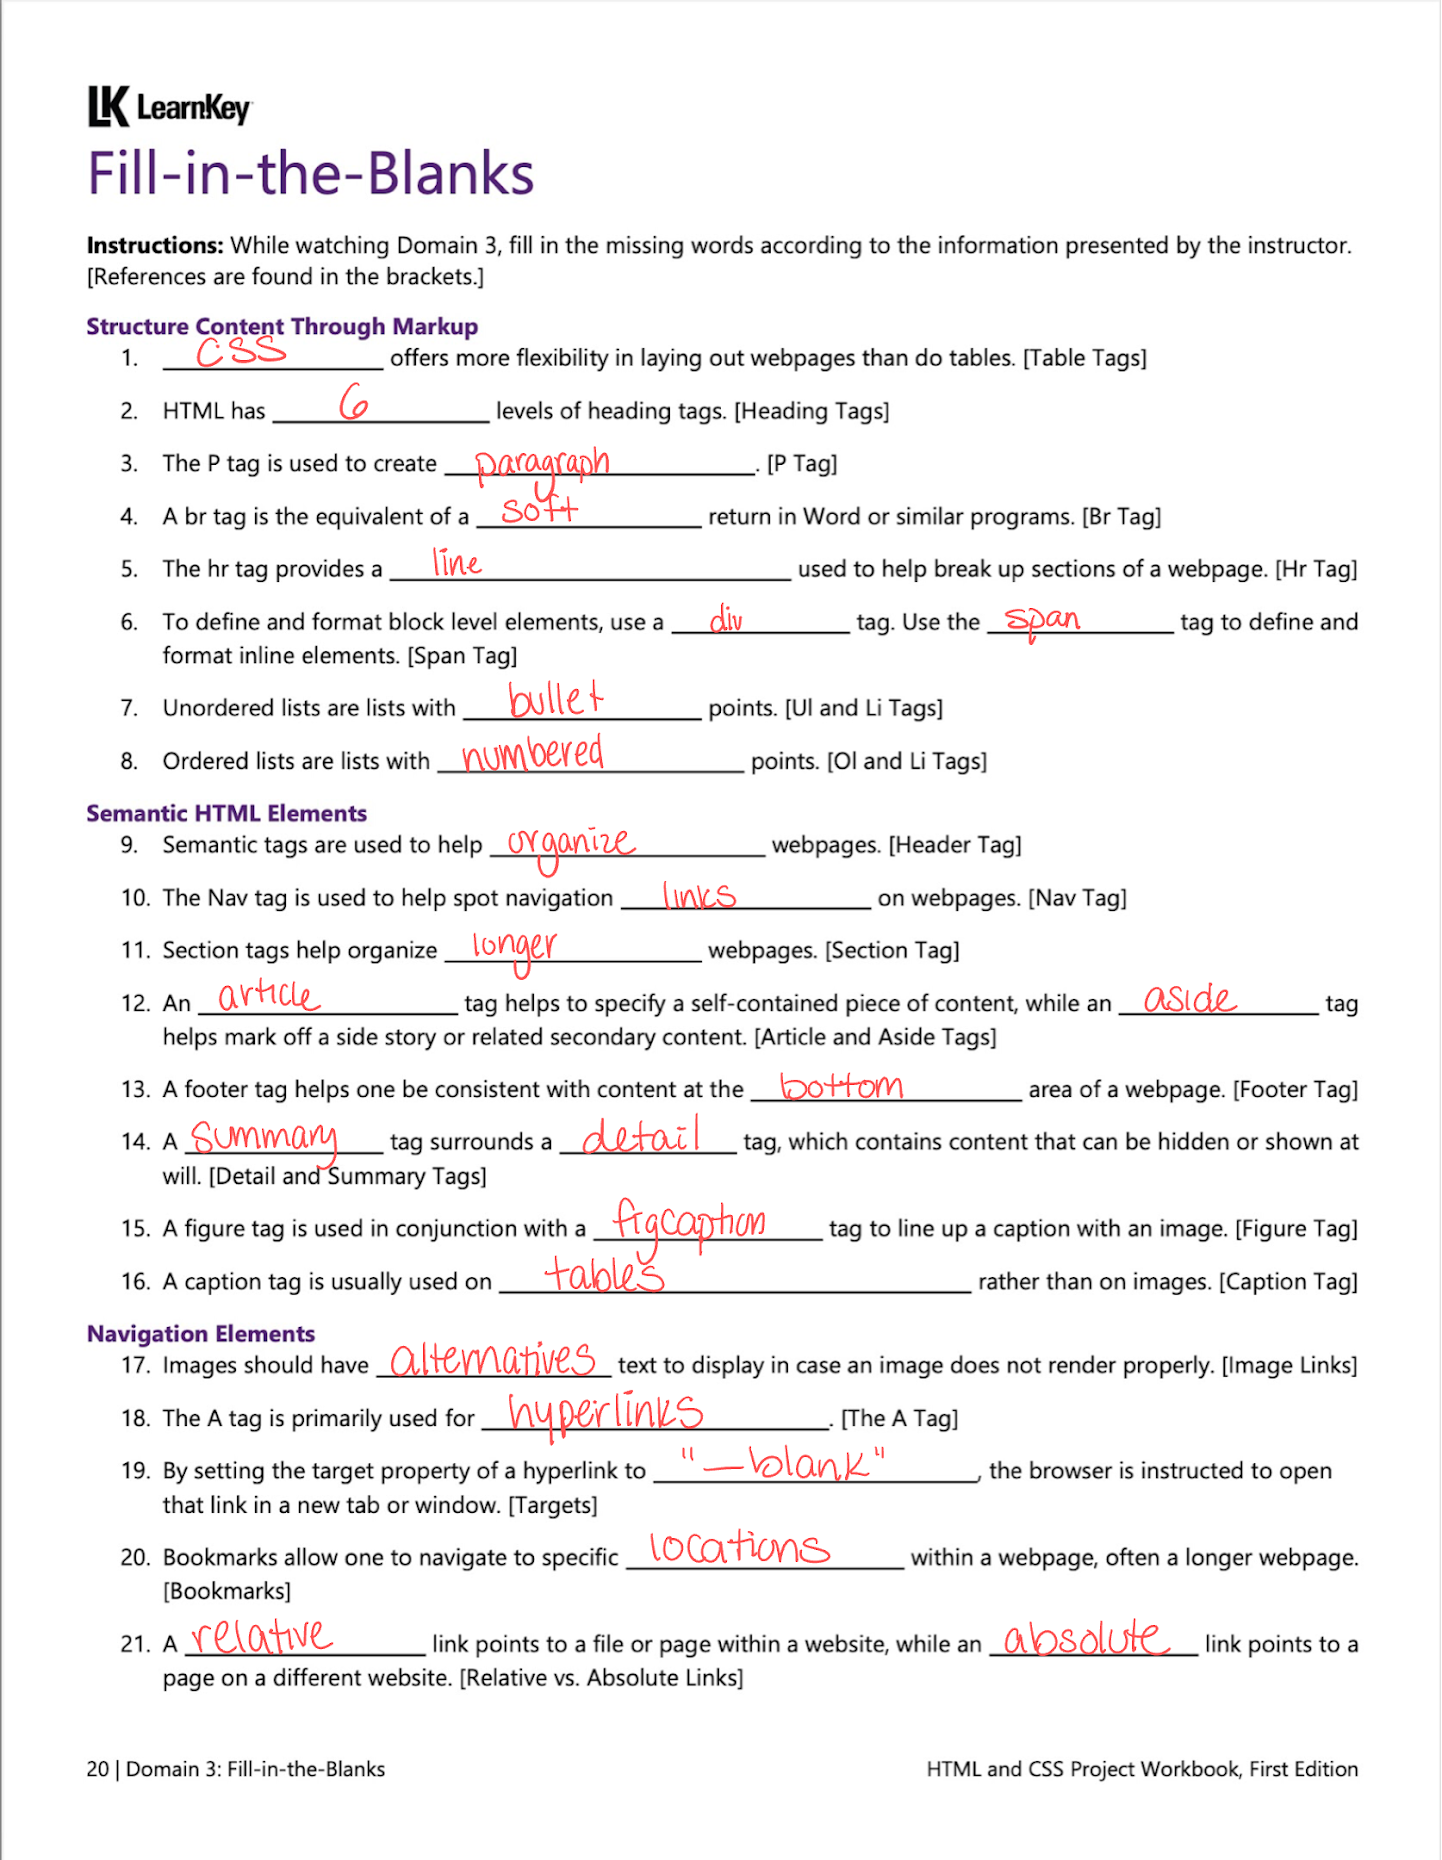 LK LearnKey
Fill-in-the-Blanks
Instructions: While watching Domain 3, fill in the missing words according to the information presented by the instructor.
[References are found in the brackets.]
Structure Content Through Markup
1. CSS offers more flexibility in laying out webpages than do tables. [Table Tags]
2. HTML has 6 levels of heading tags. [Heading Tags]
3. The P tag is used to create paragraph. [P Tag]
4. A br tag is the equivalent of a soft return in Word or similar programs. [Br Tag]
5. The hr tag provides a line used to help break up sections of a webpage. [Hr Tag]
6. To define and format block level elements, use a div tag. Use the span tag to define and
format inline elements. [Span Tag]
7. Unordered lists are lists with bullet points. [Ul and Li Tags]
8. Ordered lists are lists with numbered points. [Ol and Li Tags]
Semantic HTML Elements
9. Semantic tags are used to help organize webpages. [Header Tag]
10. The Nav tag is used to help spot navigation links on webpages. [Nav Tag]
11. Section tags help organize longer webpages. [Section Tag]
12. An article tag helps to specify a self-contained piece of content, while an aside tag
helps mark off a side story or related secondary content. [Article and Aside Tags]
13. A footer tag helps one be consistent with content at the bottom area of a webpage. [Footer Tag]
14. A summary tag surrounds a detail tag, which contains content that can be hidden or shown at
will. [Detail and Summary Tags]
15. A figure tag is used in conjunction with a figcaption tag to line up a caption with an image. [Figure Tag]
16. A caption tag is usually used on tables rather than on images. [Caption Tag]
Navigation Elements
17. Images should have alternatives text to display in case an image does not render properly. [Image Links]
18. The A tag is primarily used for hyperlinks. [The A Tag]
19. By setting the target property of a hyperlink to "_blank", the browser is instructed to open
that link in a new tab or window. [Targets]
20. Bookmarks allow one to navigate to specific locations within a webpage, often a longer webpage.
[Bookmarks]
21. A relative link points to a file or page within a website, while an absolute link points to a
page on a different website. [Relative vs. Absolute Links]
20 | Domain 3: Fill-in-the-Blanks
HTML and CSS Project Workbook, First Edition